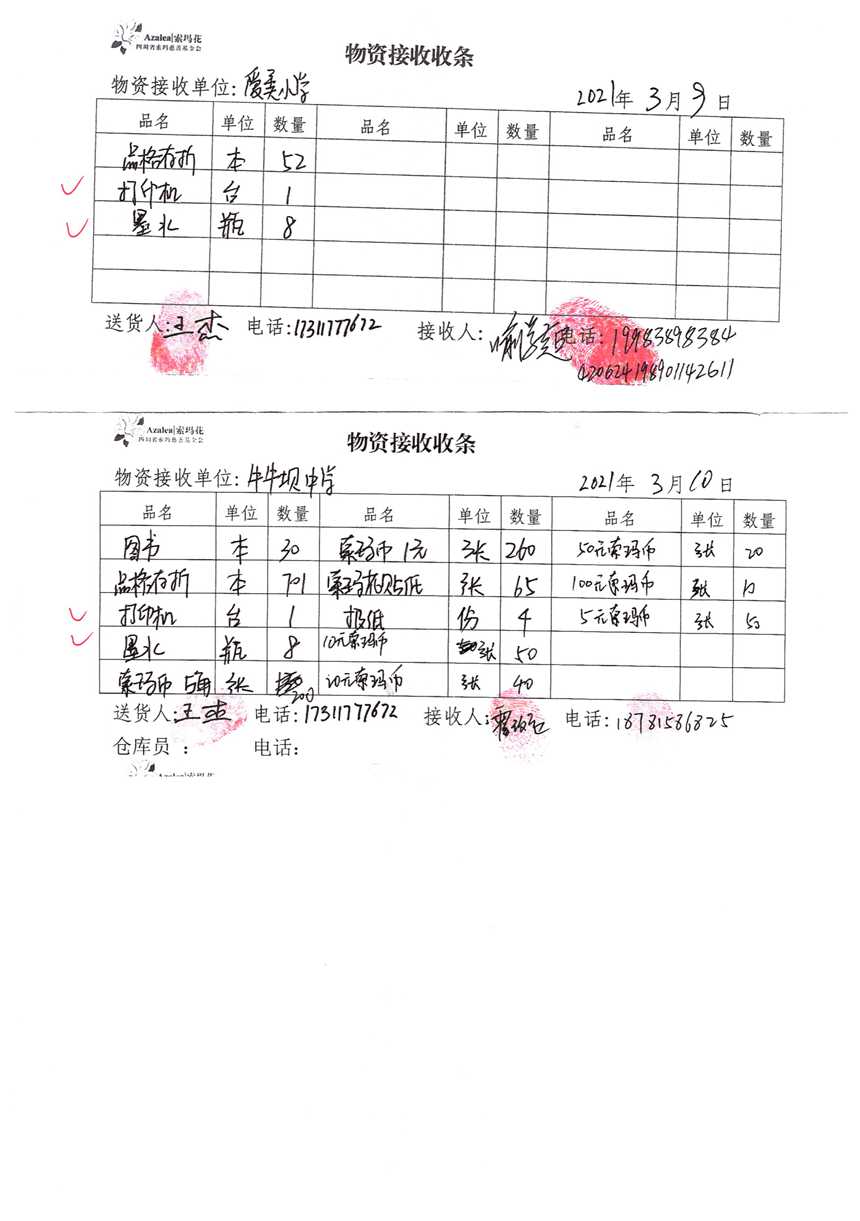 Azalea|索玛花
四川省索玛慈善基金会
物资接收收条
物资接收单位: 爱美小学 2021年 3月 9日
品名 单位 数量 品名 单位 数量 品名 单位 数量
品格存折 本 52
打印机 台 1
墨水 瓶 8
送货人: 王杰 电话: 17311777672 接收人: 电话: 19983898384
420624198901142611
Azalea|索玛花
四川省索玛慈善基金会
物资接收收条
物资接收单位: 牛牛坝中学 2021年 3月 10日
品名 单位 数量 品名 单位 数量 品名 单位 数量
图书 本 30 索玛币 1元 张 260 50元索玛币 张 20
品格存折 本 701 索玛花贴纸 张 65 100元索玛币 张 10
打印机 台 1 报纸 份 4 5元索玛币 张 50
墨水 瓶 8 10元索玛币 张 50
索玛币 5角 张 200 20元索玛币 张 40
送货人: 王杰 电话: 17311777672 接收人: 电话: 18781586825
仓库员 : 电话:
Azalea|索玛花